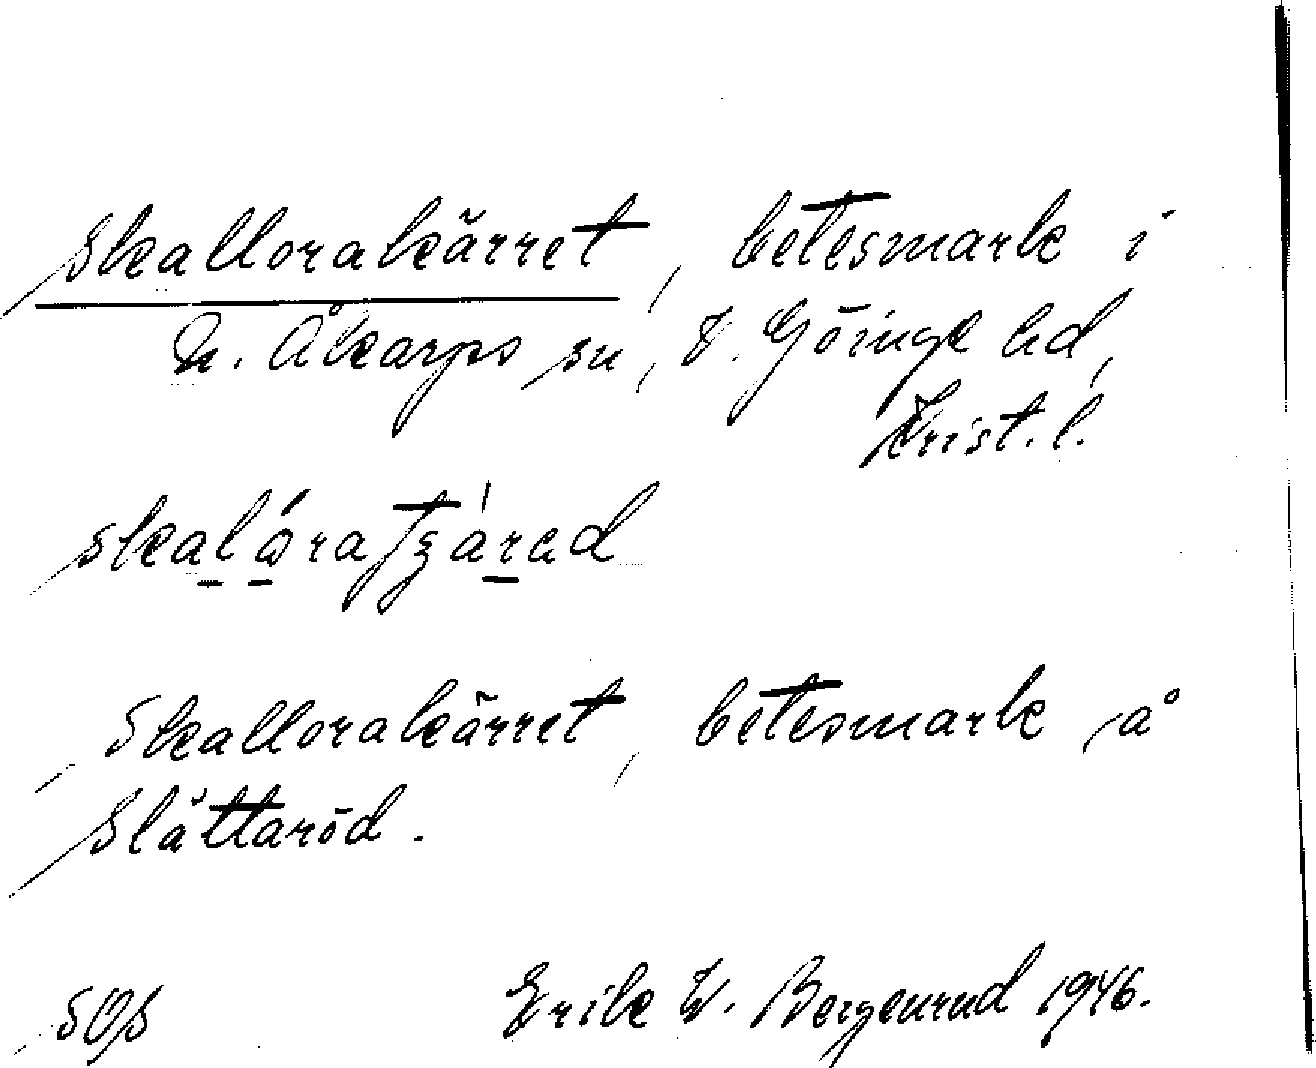 Skallorakärret, betesmark i
N. Åkarps sn, V. Göinge hd,
Krist. l.
Skallorakärret, betesmark å
Slättaröd.
SOS Erik W. Bergenrud 1946.